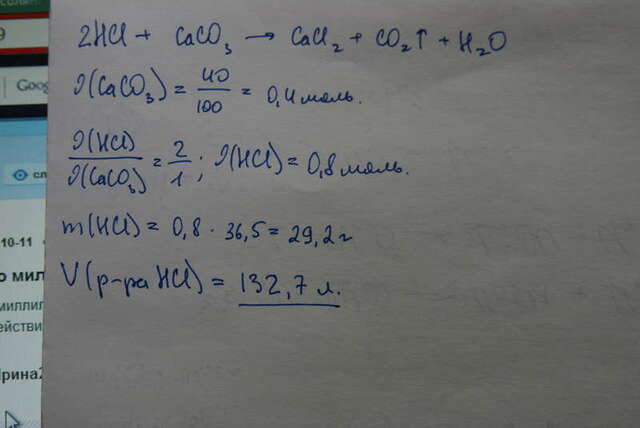 9
Goog
10-11
о мил
миллил
действи
Ірина
2HCl + CaCO₃ → CaCl₂ + CO₂↑ + H₂O
ν(CaCO₃) = 40/100 = 0,4 моль.
ν(HCl)/ν(CaCO₃) = 2/1 ; ν(HCl) = 0,8 моль.
m(HCl) = 0,8 · 36,5 = 29,2 г
V(р-ра HCl) = 132,7 л.